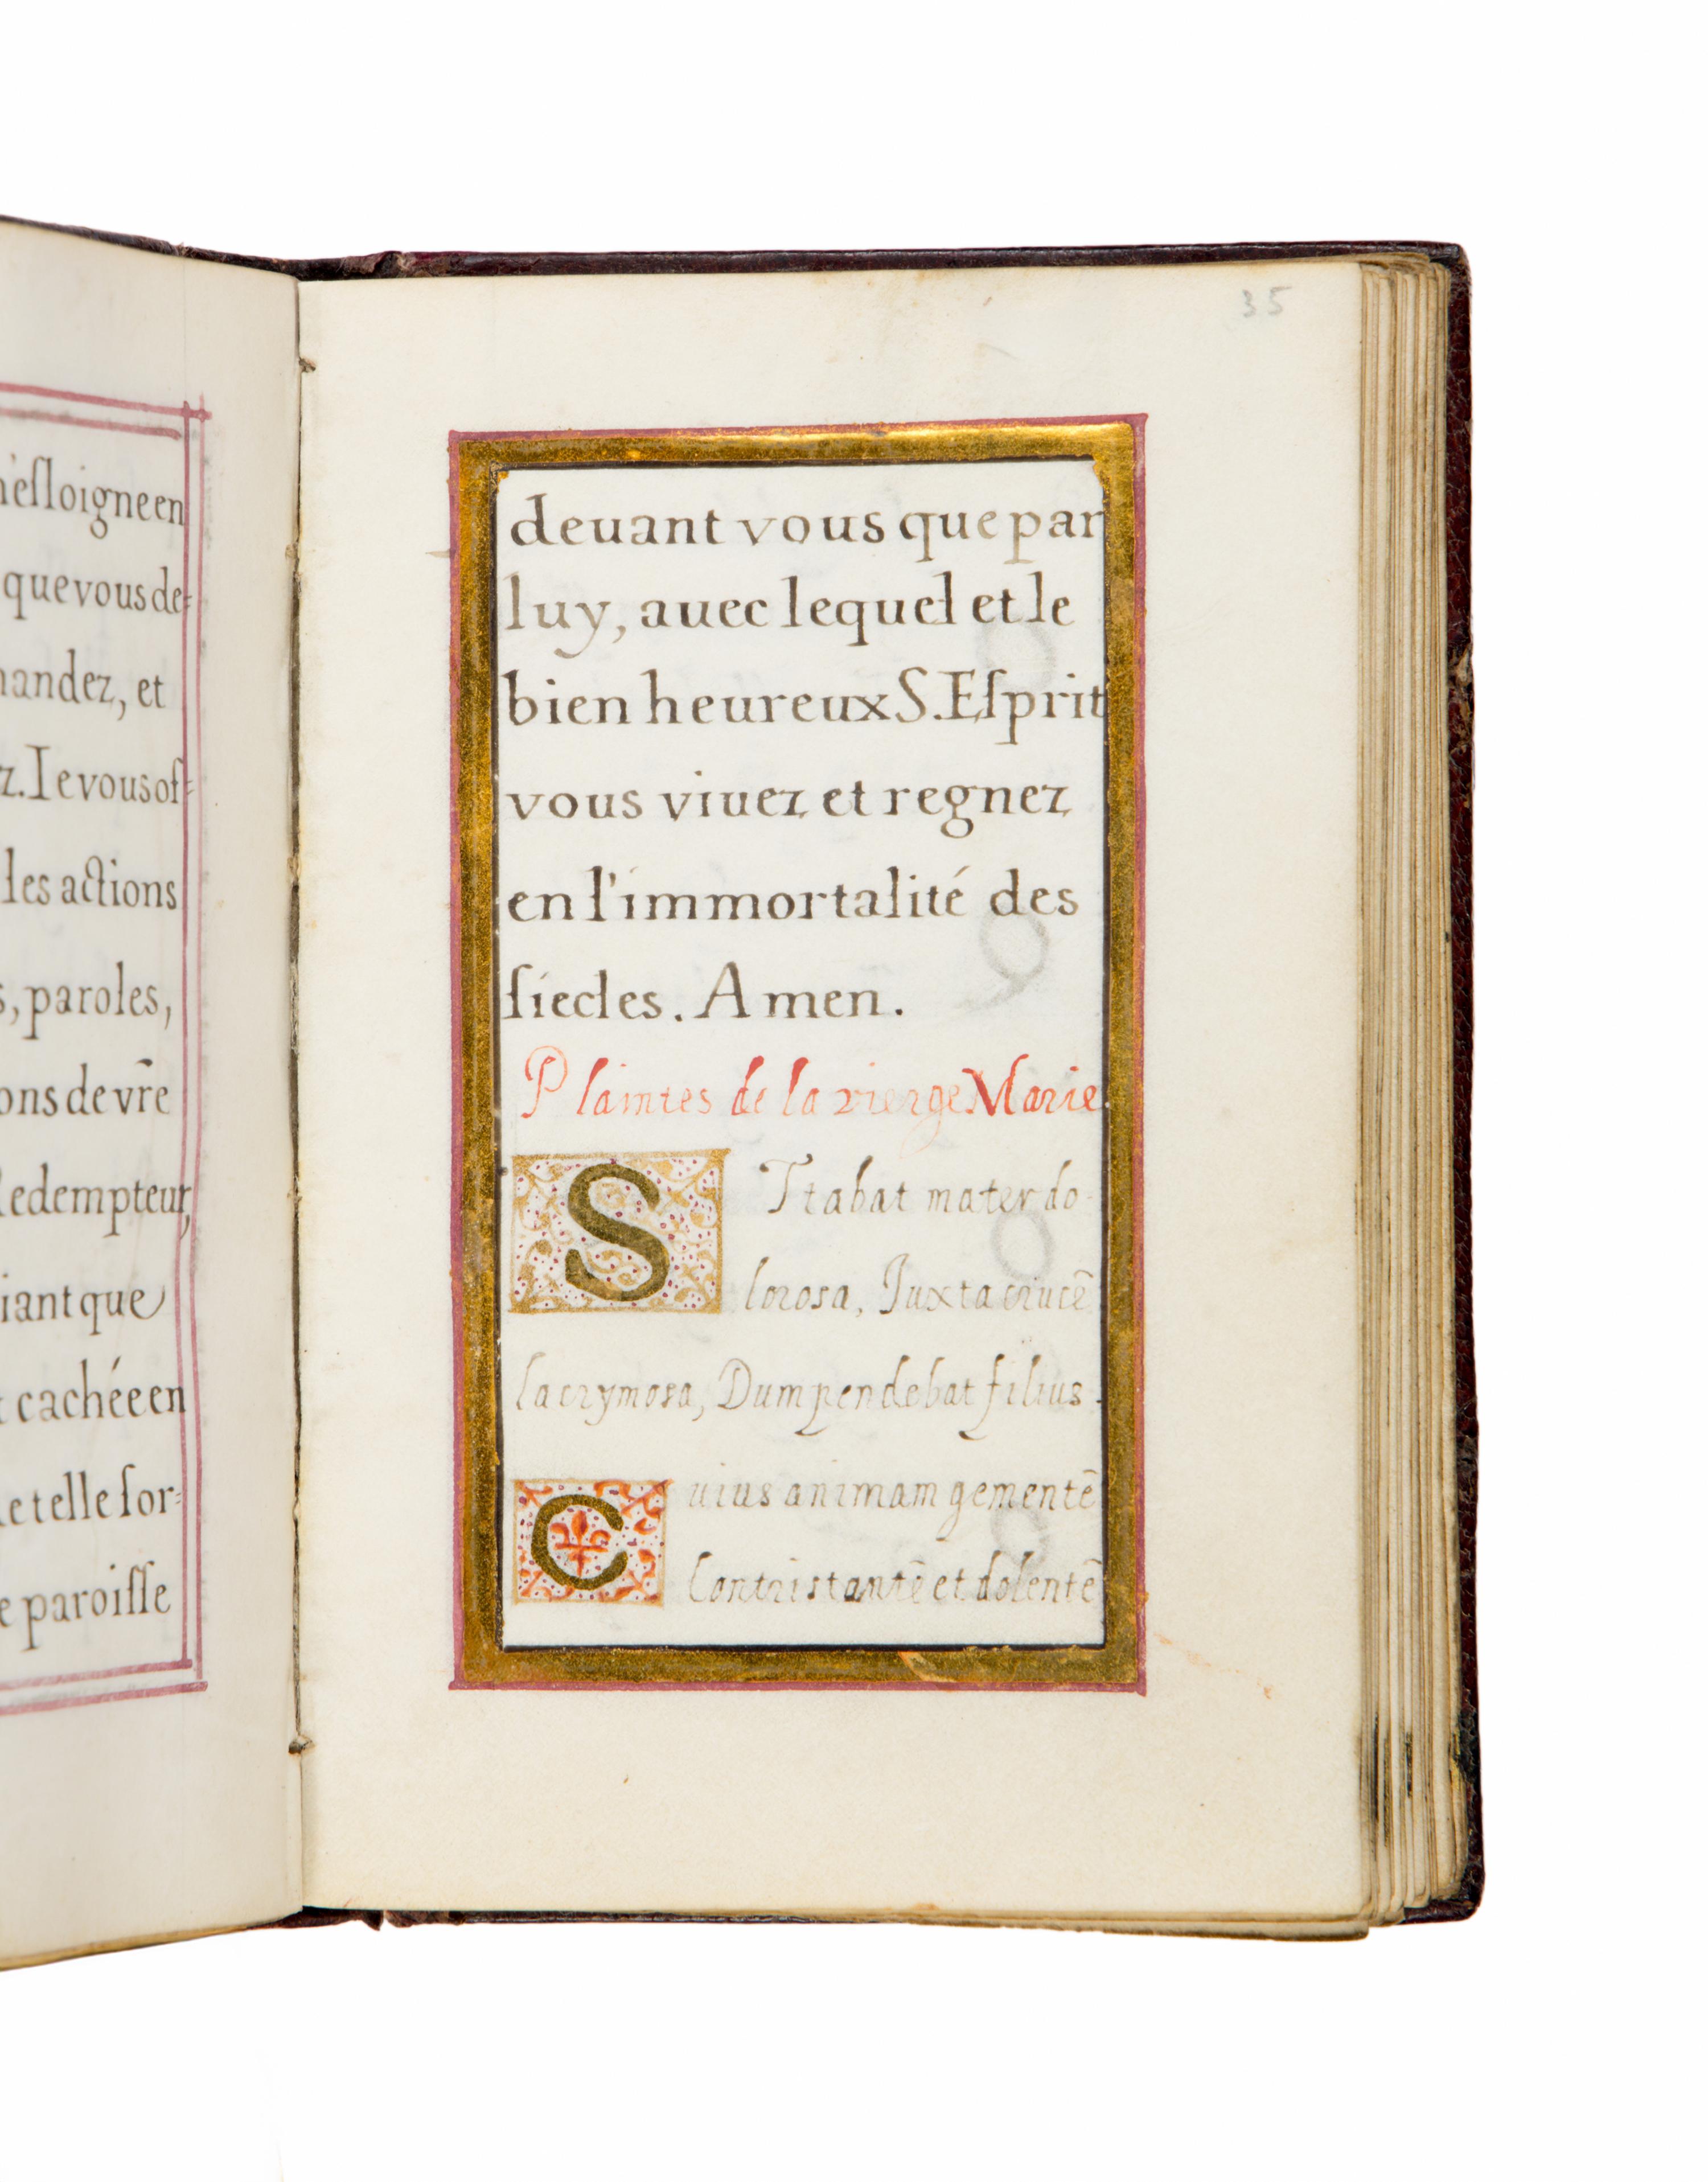 n'esloigne en
que vous de=
mandez, et
z. Ie vous of=
les actions
s, paroles,
ons de vr̃e
Redempteur,
iant que
cachée en
de telle sor=
e paroisse
35
deuant vous que par
luy, auec lequel et le
bien heureux S. Eſprit
vous viuez et regnez
en l'immortalité des
ſiecles. Amen.
Plaintes de la vierge Marie.
STtabat mater do-
lorosa, Juxta crucẽ
lacrymosa, Dum pendebat filius.
Cuius animam gementẽ
Contristantẽ et dolentẽ